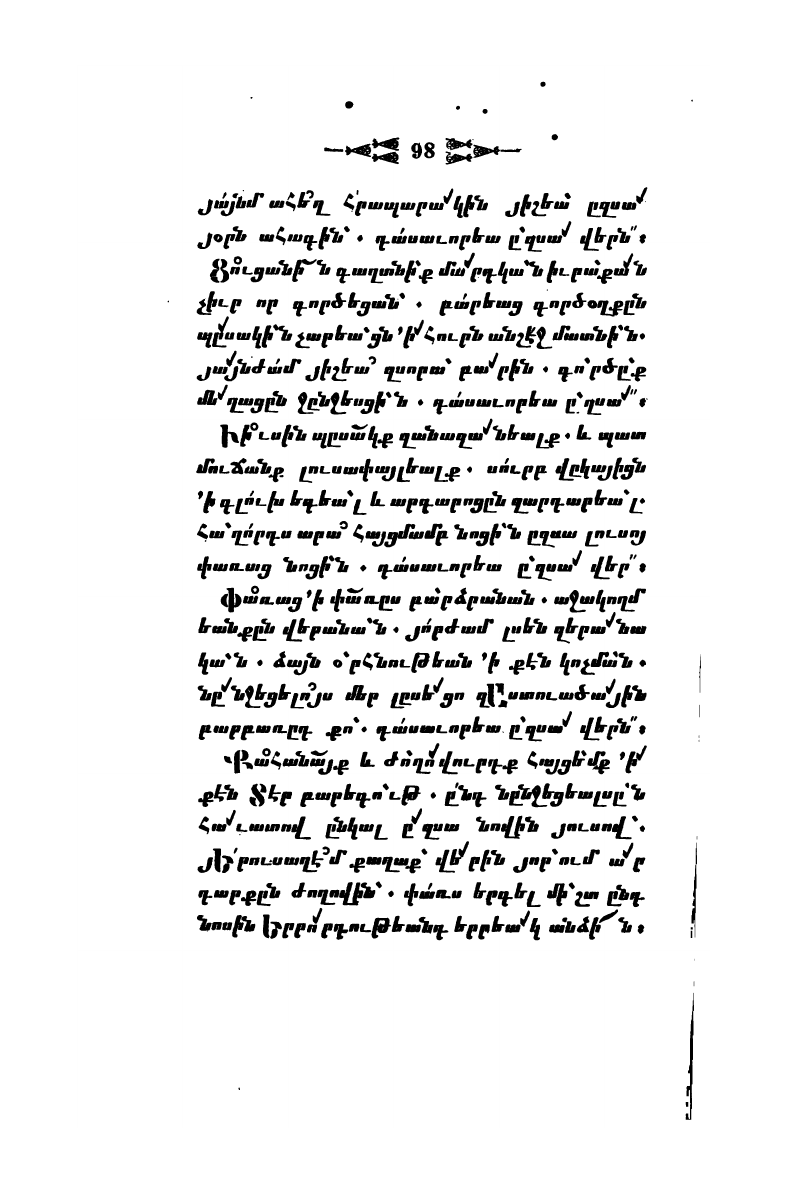 98
յայնմ ահեղ Հրապարակին յիշեա ըզսա
յօրն ահագին՝ . դասաւորեա ը՛զսա վերն :
Ցուցանի՛ն գաղտնի՛ք մարդկա՛ն իւրաքան
չիւր որ գործեցան՝ . բարեաց գործօղքըն
պըսակի՛ն չարեա՛ցն ՚ի Հուրն անշէջ մատնի՛ն .
յայնժամ յիշեա՛ զսորա՝ բարին . գո՛րծը՛ք
մեղացըն ջընջեսցի՛ն . դասաւորեա ը՛զսա :
Խի՛ւսին պըսակք զանազանեալք . և պատ
մուճանք լուսափայլեալք . սուրբ վըկայիցն
՚ի գլուխ եդեա՛լ և արդարոցըն զարդարեա՛լ .
Հա՛ղորդս արա՛ Հայցմամբ նոցի՛ն ըզսա լուսոյ
փառաց նոցին . դասաւորեա ը՛զսա վեր :
Փառաց ՚ի փառըս բարձրանան . աջակողմ
եանքըն վերանա՛ն . յորժամ լսեն զերանա
կա՛ն . ձայն օ՛րհնութեան ՚ի քէն կոչման .
նընջեցելոյս մեր լըսեցո զԱստուածային
բարբառըդ քո՝ . դասաւորեա ը՛զսա վերն :
Քահանայք և ժողովուրդք Հայցեմք ՚ի
քէն Տէր բարեգո՛ւթ . ընդ նընջեցեալսը՛ն
Հաւատով ընկալ ը՛զսա նովին յուսով՝ .
յԵրուսաղէմ քաղաք՝ վերին յոր՛ում ար
դարքըն ժողովին՝ . փառս երգել մի՛շտ ընդ
նոսին Երրորդութեանդ երրեակ անձի՛ն :